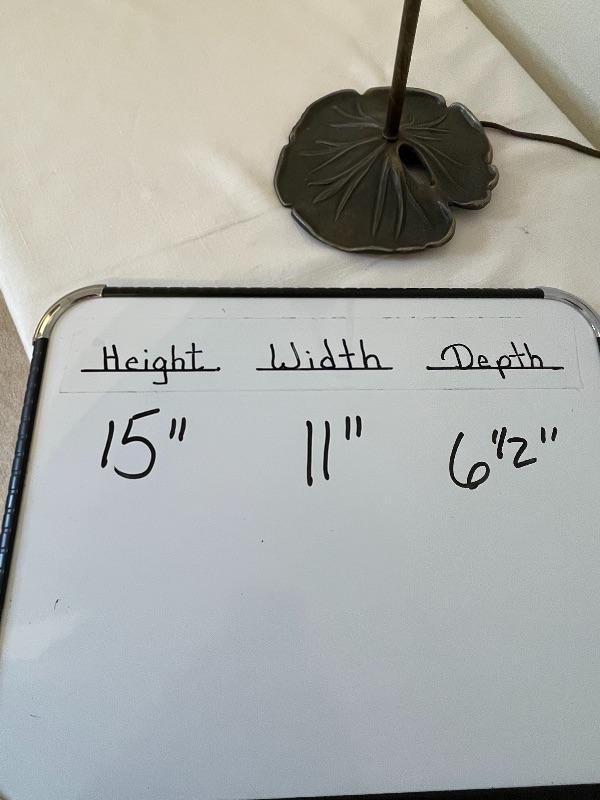 Height Width Depth
15" 11" 6 1/2"